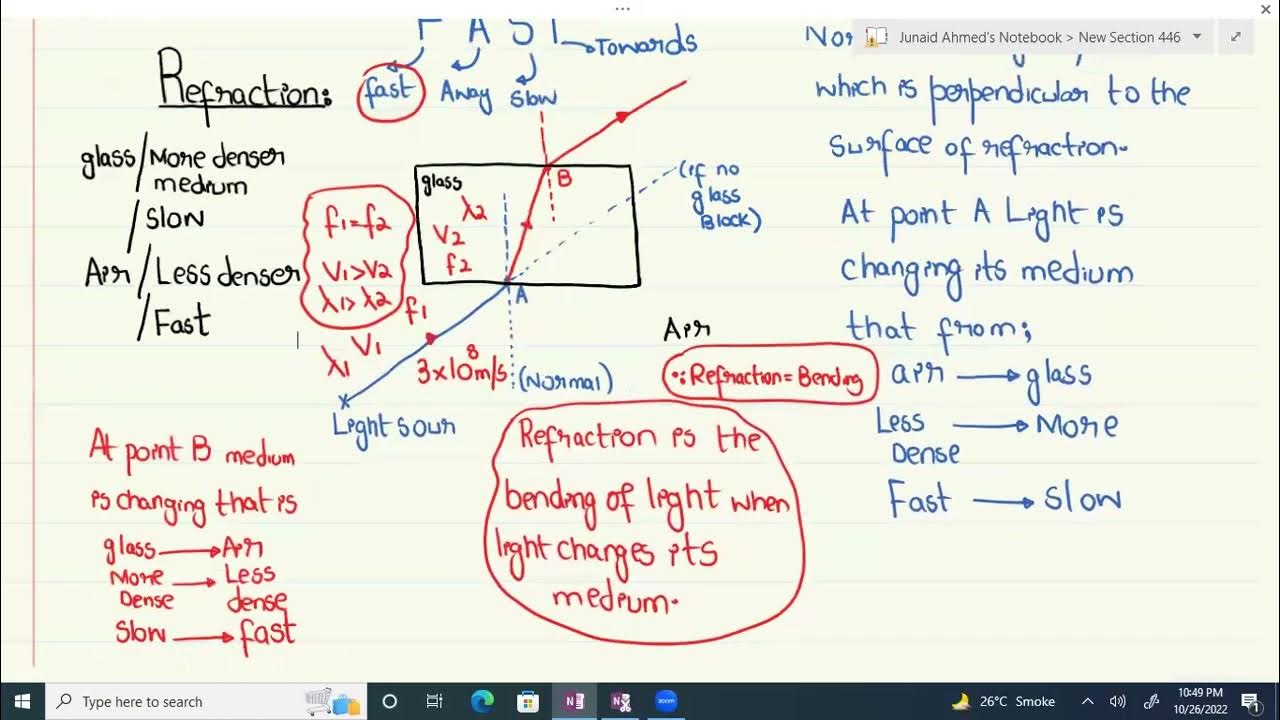 Junaid Ahmed's Notebook > New Section 446
F A S T
Towards
fast Away Slow
Refraction:
glass/More denser
medium
/Slow
Air/Less denser
/Fast
f1=f2
V1>V2
λ1>λ2
glass
λ2
V2
f2
B
A
(if no
glass
Block)
f1
V1
λ1
3×10⁸m/s
(Normal)
Light sour
Air
∵ Refraction = Bending
Refraction is the
bending of light when
light changes its
medium.
At point B medium
is changing that is
glass → Air
More → Less
Dense dense
Slow → fast
Nor
which is perpendicular to the
surface of refraction.
At point A Light is
changing its medium
that from;
air → glass
Less → More
Dense
Fast → Slow
Type here to search
zoom
26°C Smoke
10:49 PM
10/26/2022
1